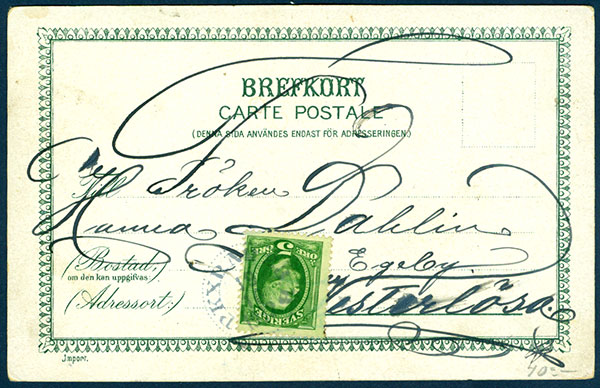 BREFKORT
CARTE POSTALE
(DENNA SIDA ANVÄNDES ENDAST FÖR ADRESSERINGEN.)
Till Fröken
Hanna Dahlin
(Bostad,
om den kan uppgifvas:)
Egeby
(Adressort:)
Westerlösa
5 ÖRE
SVERIGE
Imporr.
40:-